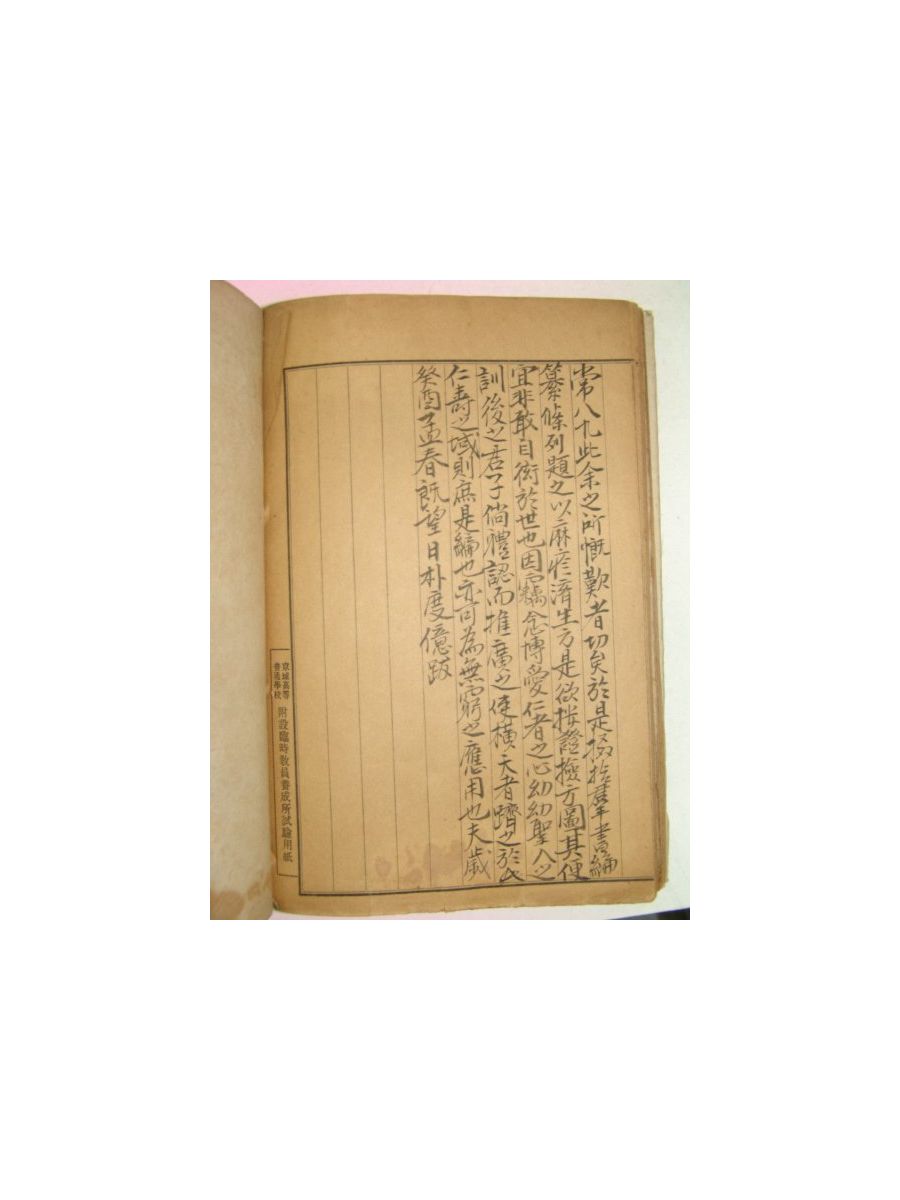 常八九此余之所慨歎者切矣於是掇拾羣書編
纂條列題之以麻疹濟生方是欲按證撿方圖其便
宜非敢自衒於世也因竊念博愛仁者之心幼幼聖人之
訓後之君子倘體認而推廣之使橫夭者躋之於
仁壽之域則庶是編也亦可為無窮之應用也夫歲
癸酉孟春旣望日朴度億跋
京城高等
普通學校
附設臨時敎員養成所試驗用紙